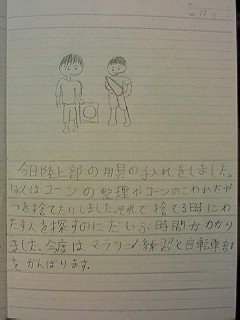 今日陸上部の用具の手入れをしました。
ぼくはコーンの整理やコーンのこわれたや
つを捨てたりしました。それで捨てる時にわ
たす人を探すのにだいぶ時間がかかり
ました。今度はマラソン練習と自転車
をがんばります。